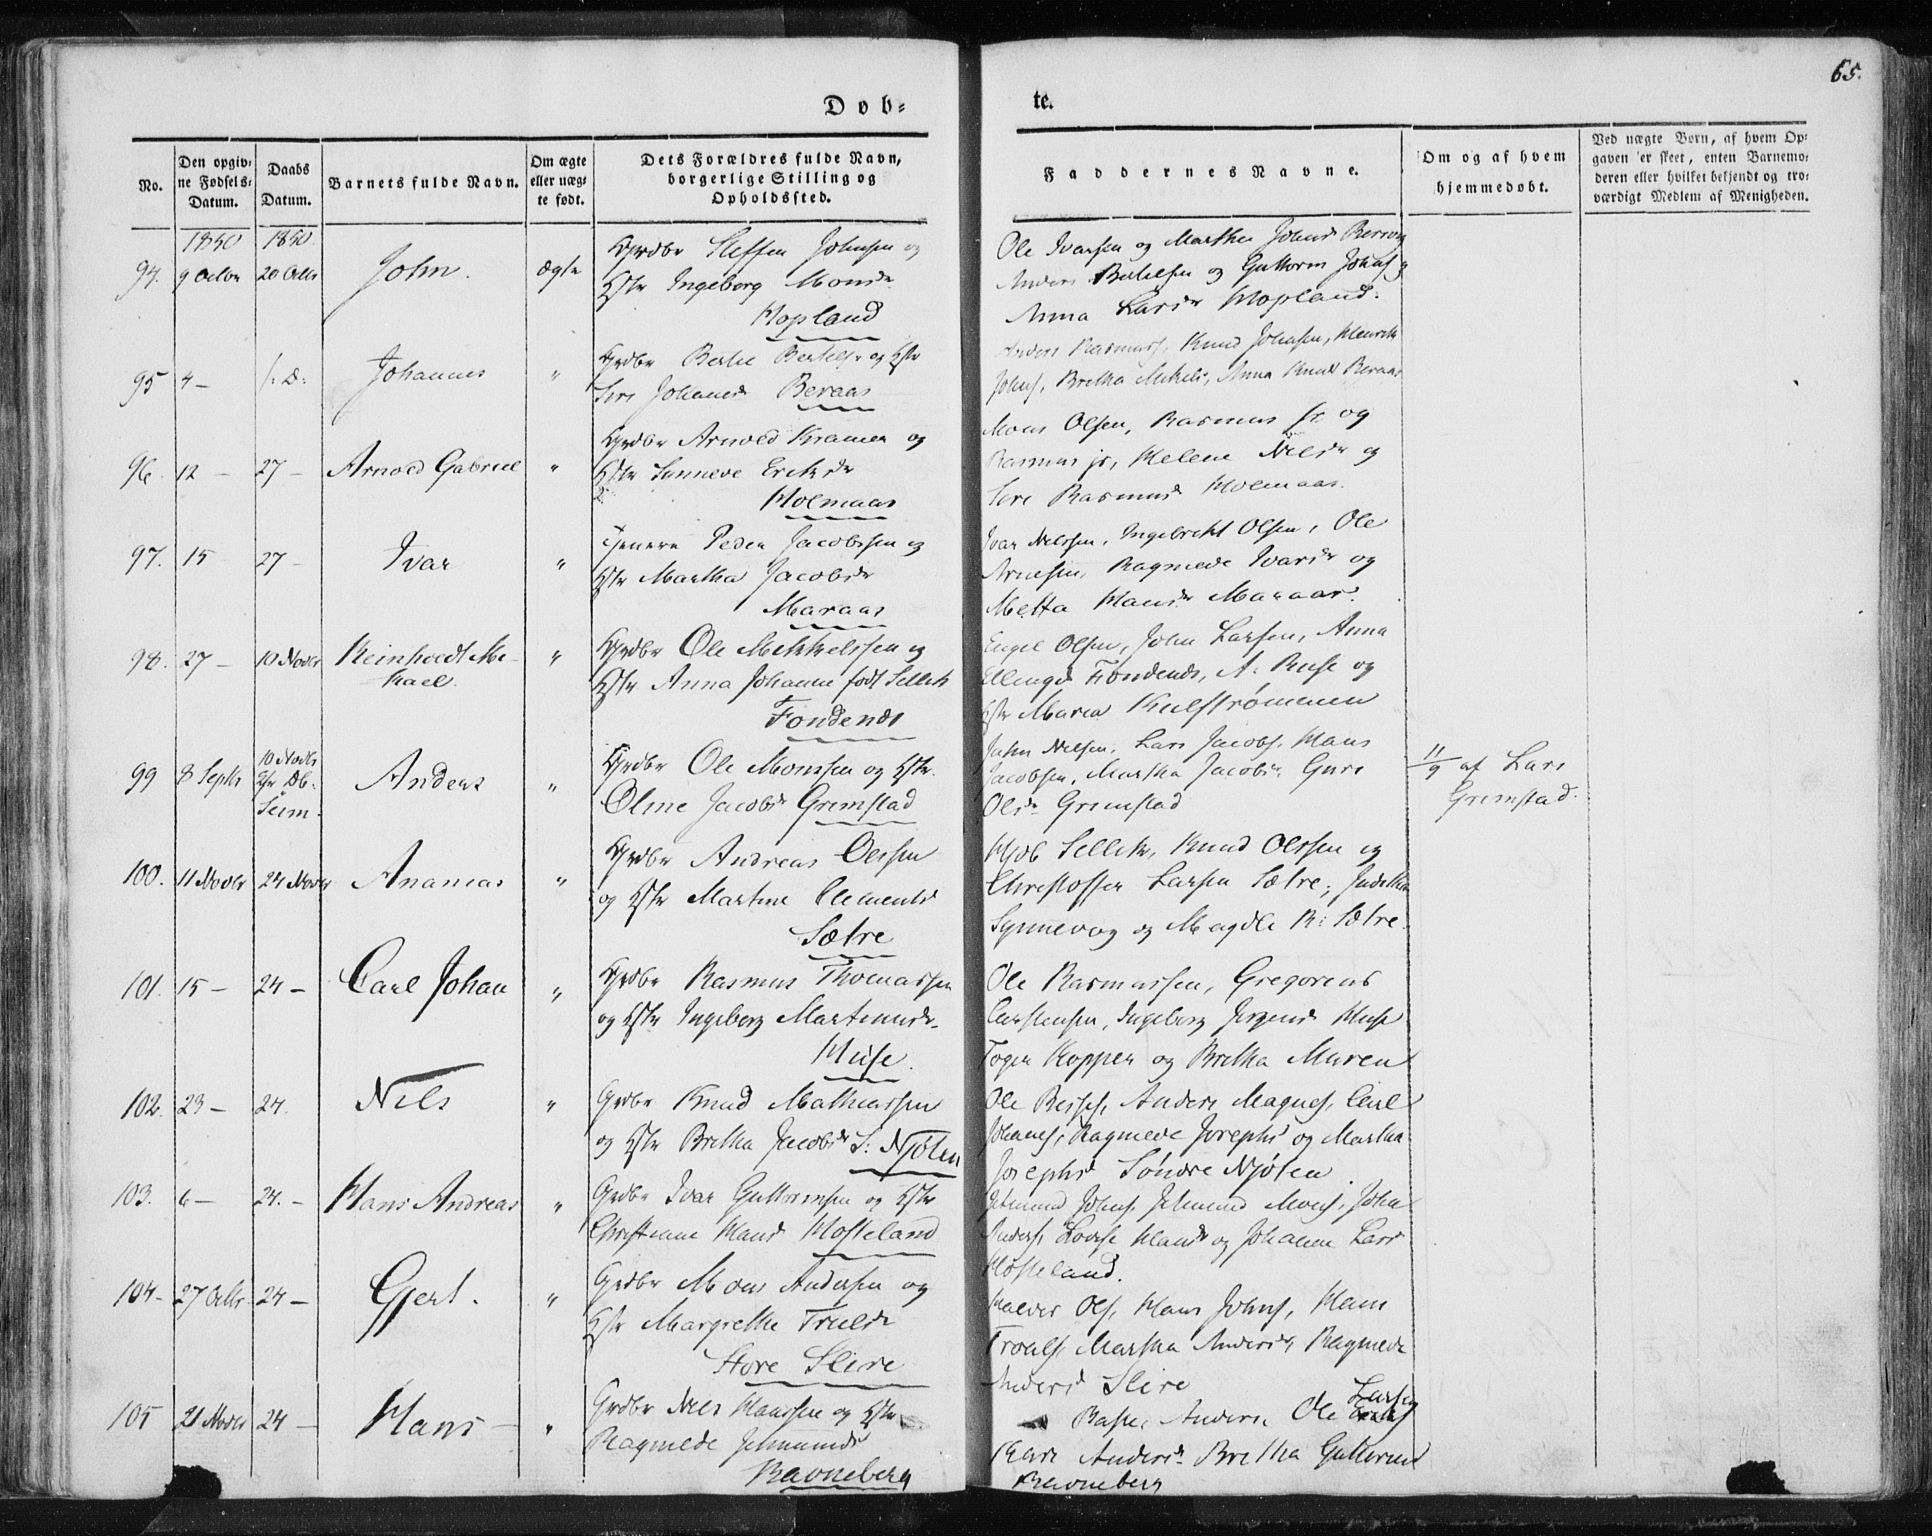 65.
Dob-
te.
No.
Den opgiv-
ne Fødsels-
Datum.
Daabs
Datum.
Barnets fulde Navn.
Om ægte
eller uæg-
te født.
Dets Forældres fulde Navn,
borgerlige Stilling og
Opholdssted.
Faddernes Navne.
Om og af hvem
hjemmedøbt.
Ved uægte Børn, af hvem Op-
gaven er skeet, enten Barnemo-
deren eller hvilket bekjendt og tro-
værdigt Medlem af Menigheden.
1850 1850
94. 9 Octbr 20 Octbr John. ægte
Grdbr Steffen Johnsen og
Hstr Ingeborg Monsdr
Hopland
Ole Ivarsen og Martha Johnsd
Anders Bertelsen og Guttorm Johns
Anna Larsdr Hopland.
95 4 - Johannes "
Grdbr Bertel Bertels. og Hstr
Siri Johansd Beraas
Anders Rasmuss, Knud Johnsen, Henrik
Johns, Bretha Mikels, Anna Knuds Beraas
96. 12 - 27 - Arnold Gabriel "
Grdbr Arnold Kramer og
Hstr Synneve Eriksdr
Holmaas
Mons Olsen, Rasmus sr og
Rasmus jr, Helene Nilsdr og
Siri Rasmusd Holmaas.
97. 15 27 - Ivar "
Peder Jacobsen og
Hstr Martha Jacobsdr
Maraas
Ivar Nilssen, Ingebrikt Olsen, Ole
Arnesen, Ragnilde Ivarsdr og
Metta Hansdr Maraas.
98. 27 - 10 Novbr Reinholdt Mi-
kael. "
Grdbr Ole Mikkelssen og
Hstr Anna Johanne født Sellek
Fondenes
Engel Olsen, John Larsen, Anna
Ellingsd Fondenes, A. Ruse og
Hstr Maren Kulstrømmen
99 8 Septbr 10 Novbr
Seim. Anders "
Grdbr Ole Monssen og Hstr.
Oline Jacobsdr Grimstad
John Nilsen, Lars Jacobs, Hans
Jacobsen, Martha Jacobsdr, Guri
Olsdr Grimstad
11/9 af Lars
Grimstad.
100. 11 Novbr 24 Novbr Ananias "
Grdbr Andreas Olssen
og Hstr Martine Clementsd
Sætre
Sellek, Knud Olssen og
Christoffer Larsen Sætre,
Synnevaag og Magdle R. Sætre.
101. 15 - 24 - Carl Johan "
Grdbr Rasmus Thomassen
og Hstr Ingeborg Martinusdr.
Huse.
Ole Rasmussen, Gregorius
Carstensen, Ingeborg Jørgensd Huse
Kopper og Bretha Maren
102. 23 - 24. Nils "
Grdbr Knud Mathiassen
og Hstr Bretha Jacobsdr S: Njøten
Ole, Anders Magnes, Carl
Johans, Ragnilde Josephsd og Martha
Josephsd Søndre Njøten.
103. 6 - 24. - Hans Andreas "
Grdbr Ivar Guttormsen og Hstr
Christiane Hansd Hosteland
Jetmund Johns, Jetmund Mons, John
Anders, Lovise Hansdr og Johanne Lars
Hosteland.
104 - 27 Octbr 24 - Gjert. "
Grdbr Mons Andersen og
Hstr Margrethe Trulsdr
Store Slire
Halvor Ols, Hans Johns, Hans
Troels, Martha Andersdr, Ragnilde
Andersd Slire
105 21 Novbr 24 - Hans - "
Grdbr Nils Hanssen og Hstr
Ragnilde Jetmundsd
Ravneberg
Anders, Ole Larsen
Kari Andersdr. Bretha Guttormsd
Ravneberg